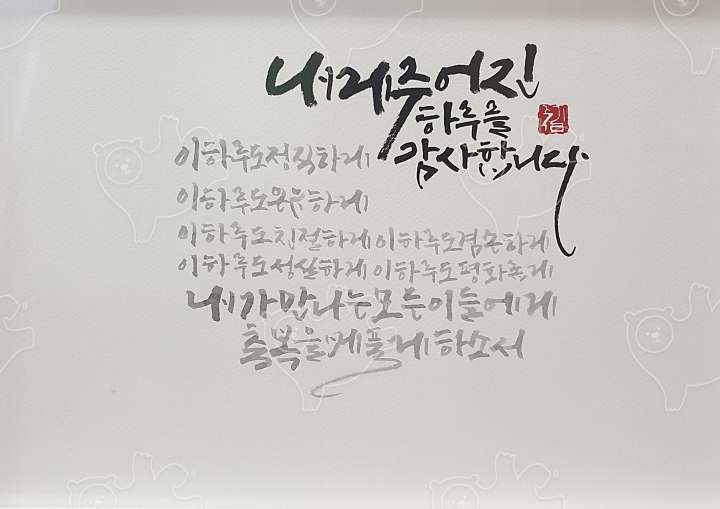 내게 주어진
하루를
감사합니다
이 하루도 정직하게
이 하루도 온유하게
이 하루도 친절하게 이 하루도 겸손하게
이 하루도 성실하게 이 하루도 평화롭게
내가 만나는 모든 이들에게
축복을 베풀게 하소서